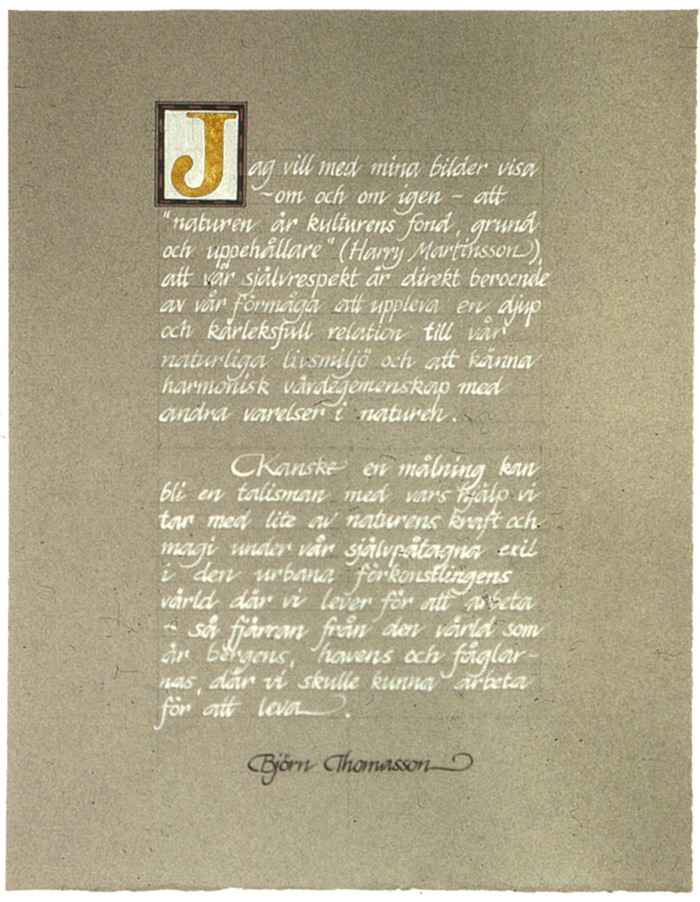 Jag vill med mina bilder visa
– om och om igen – att
"naturen är kulturens fond, grund
och uppehållare" (Harry Martinsson),
att vår självrespekt är direkt beroende
av vår förmåga att uppleva en djup
och kärleksfull relation till vår
naturliga livsmiljö och att känna
harmonisk värdegemenskap med
andra varelser i naturen.
Kanske en målning kan
bli en talisman med vars hjälp vi
tar med lite av naturens kraft och
magi under vår självpåtagna exil
i den urbana förkonstlingens
värld där vi lever för att arbeta
– så fjärran från den värld som
är bergens, havens och fåglar-
nas, där vi skulle kunna arbeta
för att leva.
Björn Thomasson